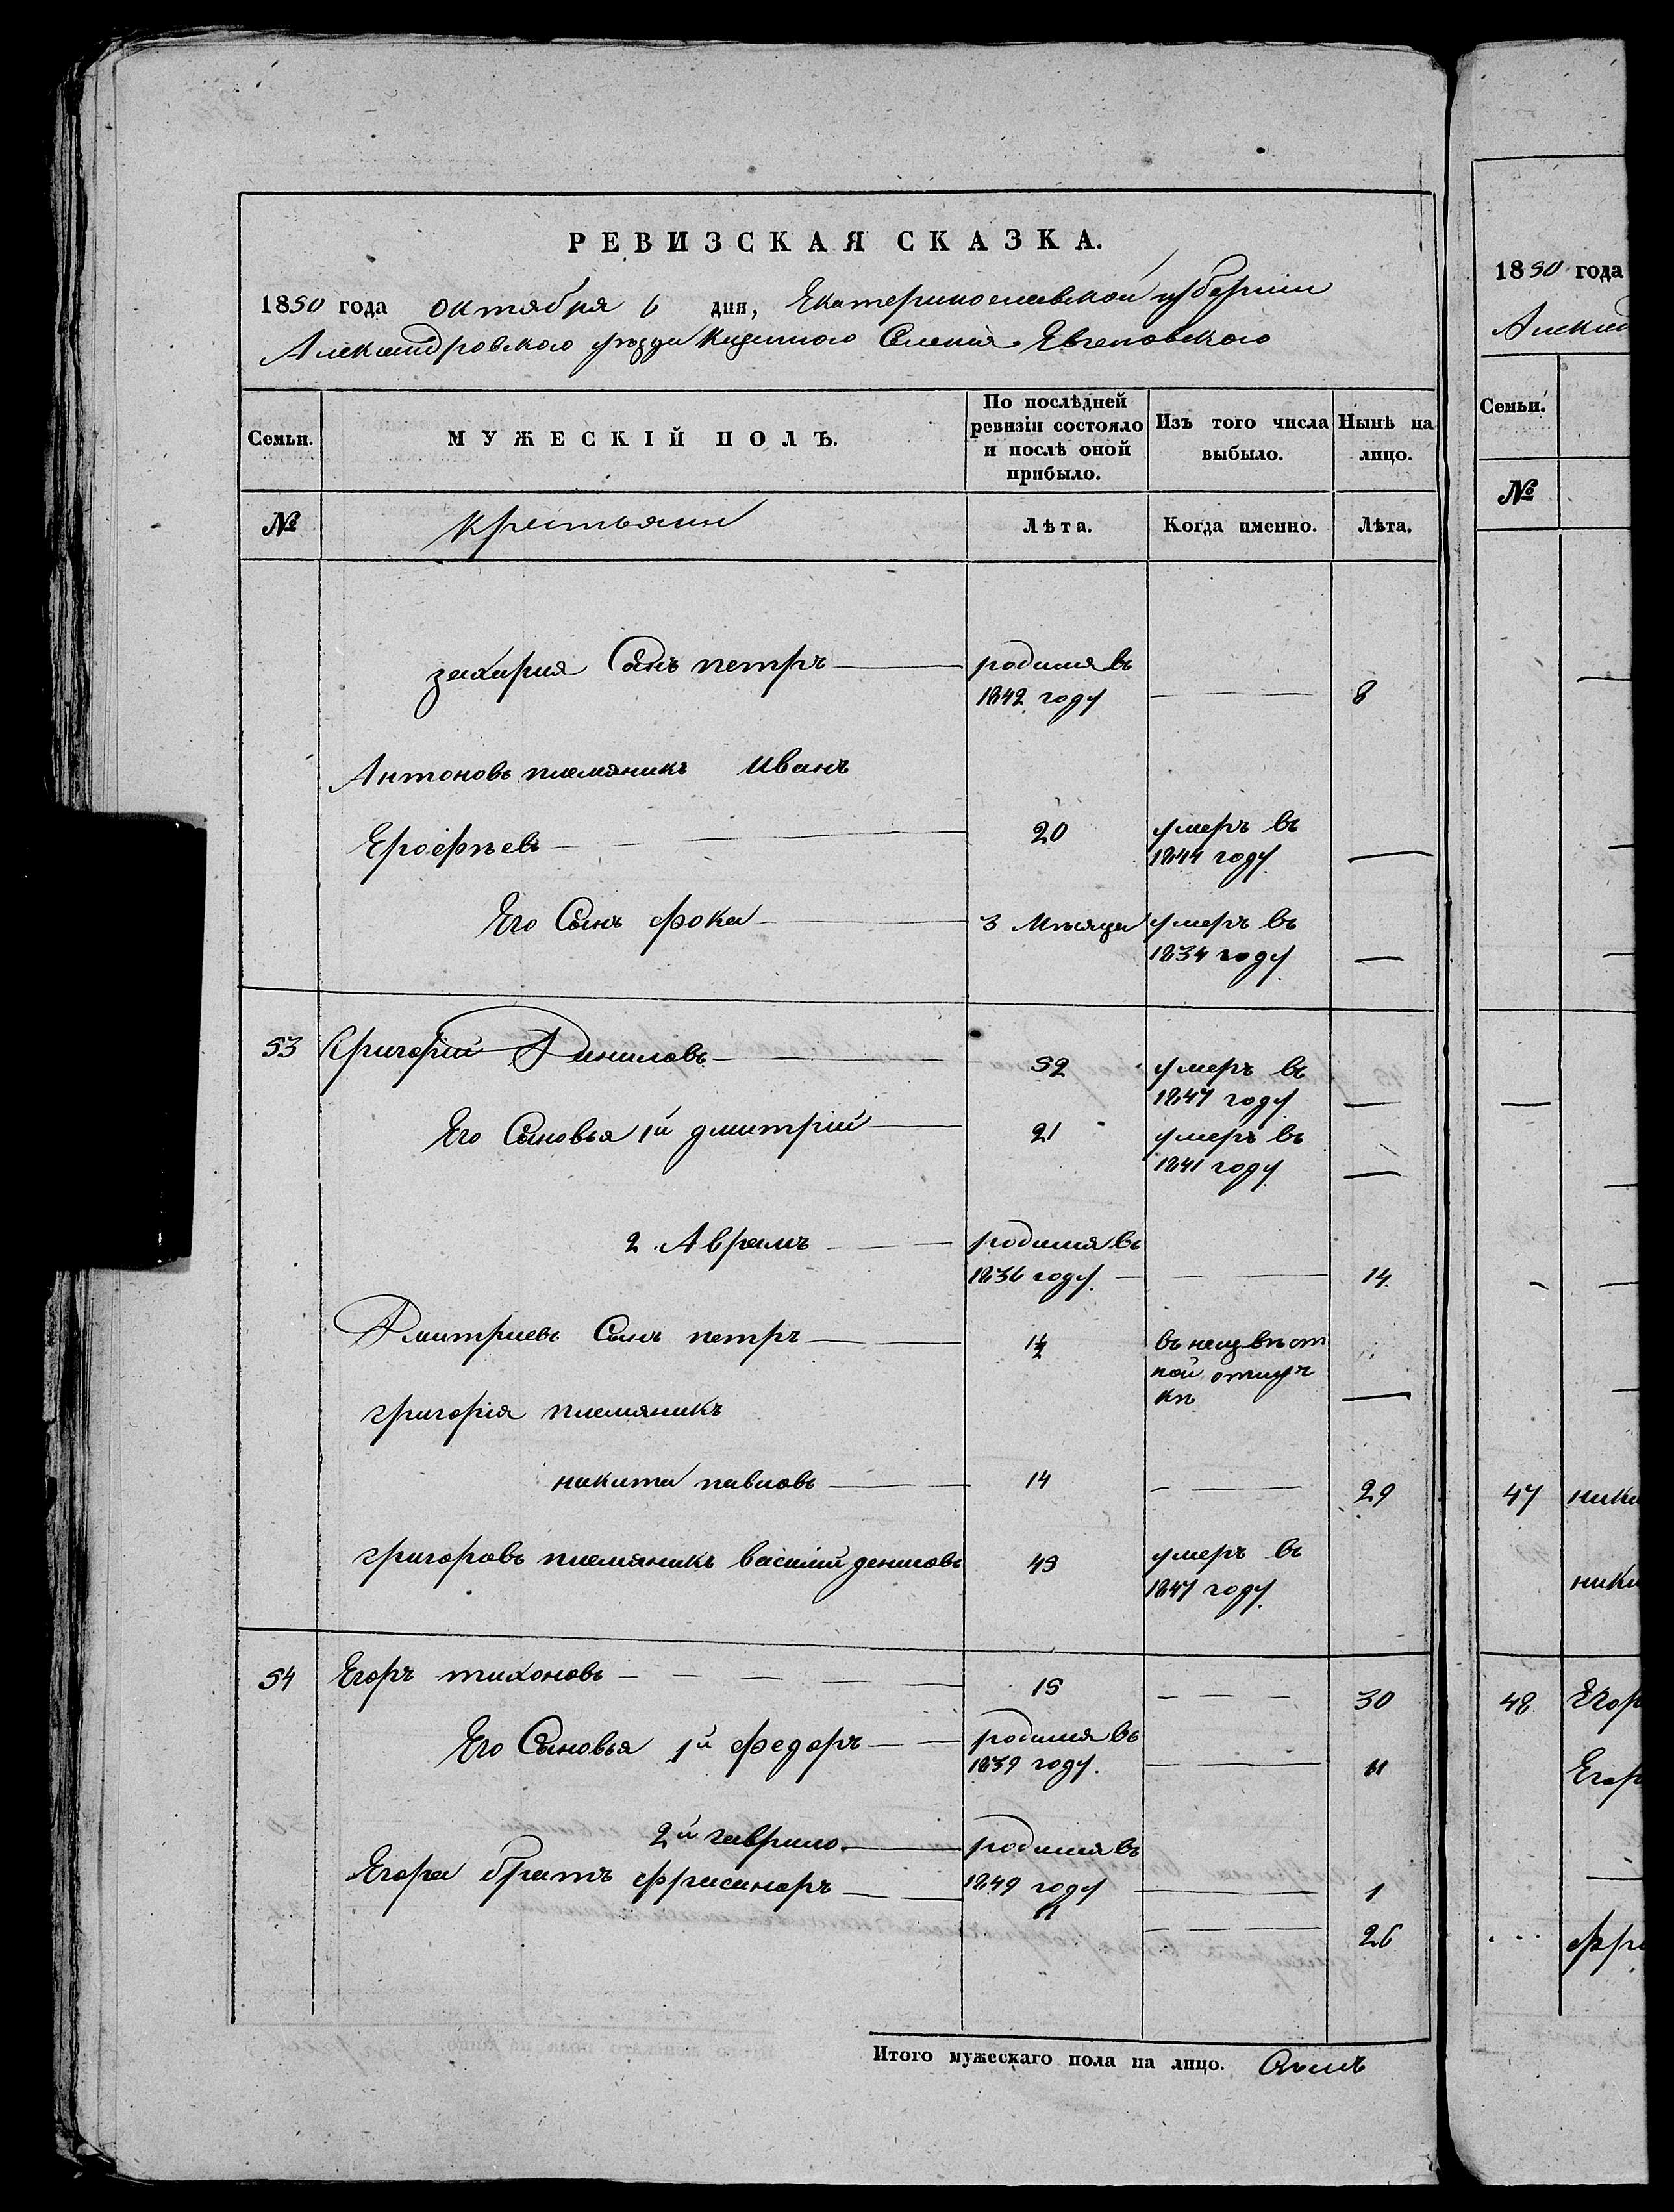 РЕВИЗСКАЯ СКАЗКА.
1850 года октября 6 дня, Екатеринославской губернии
Александровского уезда Казенного Селения Евгеновского
Семьи. МУЖЕСКІЙ ПОЛЪ. По послѣдней ревизіи состояло и послѣ оной прибыло. Изъ того числа выбыло. Нынѣ на лицо.
№ крестьяни Лѣта. Когда именно. Лѣта.
захария Сынъ петръ родился въ
1842 году 8
Антоновъ племяникъ Иванъ
Ерофѣевъ 20 умеръ въ
1844 году
Его Сынъ фока 3 Мѣсяца умеръ въ
1834 году
53 Григорій Даниловъ 52 умеръ въ
1847 году
Его Сыновья 1й дмитрій 21 умеръ въ
1841 году
2 Аврамъ родился въ
1836 году. 14
Дмитриевъ Сынъ петръ 1½ въ неизвѣст
ной отлуч
кѣ
григорія племяникъ
никита павловъ 14 29
григоровъ племяникъ василий денисовъ 45 умеръ въ
1847 году
54 Егоръ тихоновъ 15 30
Его Сыновья 1й федоръ родился въ
1839 году. 11
2й гаврило родился въ
1849 году 1
Егора братъ 11 26
Итого мужескаго пола на лицо. Семь
1850 года
Алексан
Семьи.
№
47 ники
ники
48 Егор
Егор
фри